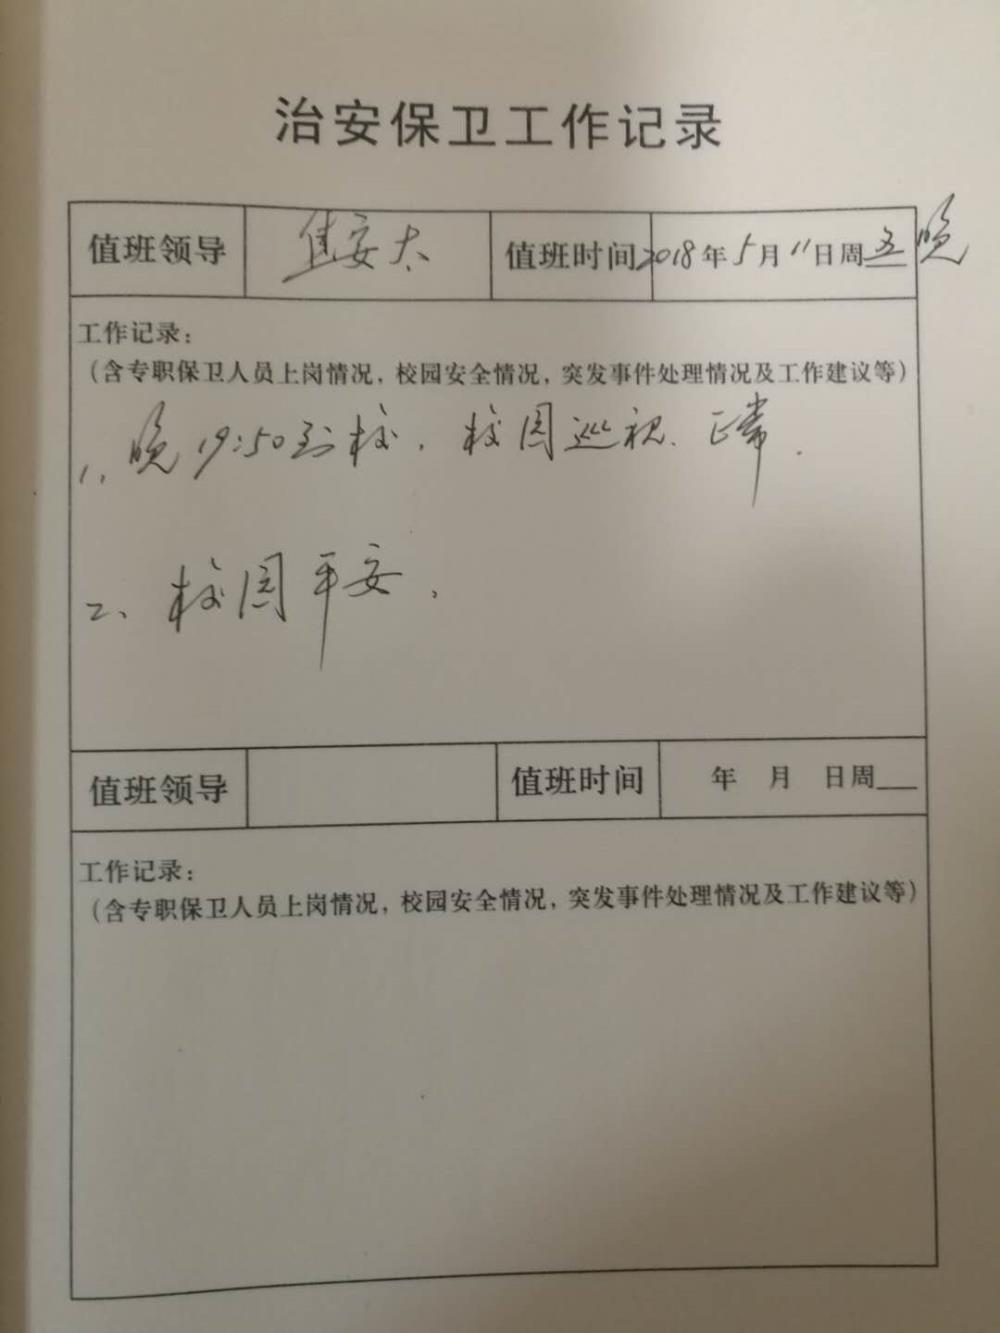 治安保卫工作记录
值班领导 焦安太 值班时间 2018年5月11日周五晚
工作记录:
(含专职保卫人员上岗情况,校园安全情况,突发事件处理情况及工作建议等)
1、晚19:50到校,校园巡视、正常.
二、校园平安、
值班领导 值班时间 年 月 日周
工作记录:
(含专职保卫人员上岗情况,校园安全情况,突发事件处理情况及工作建议等)